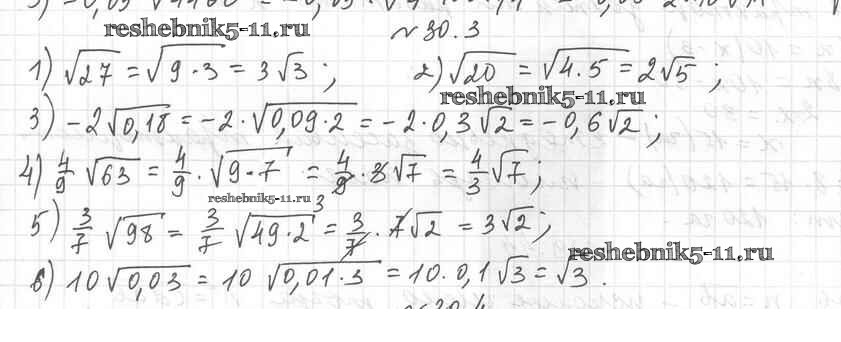 reshebnik5-11.ru
№ 30.3
1) √27 = √9·3 = 3√3; 2) √20 = √4·5 = 2√5;
reshebnik5-11.ru
3) -2√0,18 = -2·√0,09·2 = -2·0,3√2 = -0,6√2;
4) 4/9 √63 = 4/9 · √9·7 = 4/9 · 3√7 = 4/3 √7;
reshebnik5-11.ru 3
5) 3/7 √98 = 3/7 √49·2 = 3/7 · 7√2 = 3√2;
reshebnik5-11.ru
6) 10√0,03 = 10√0,01·3 = 10·0,1√3 = √3.